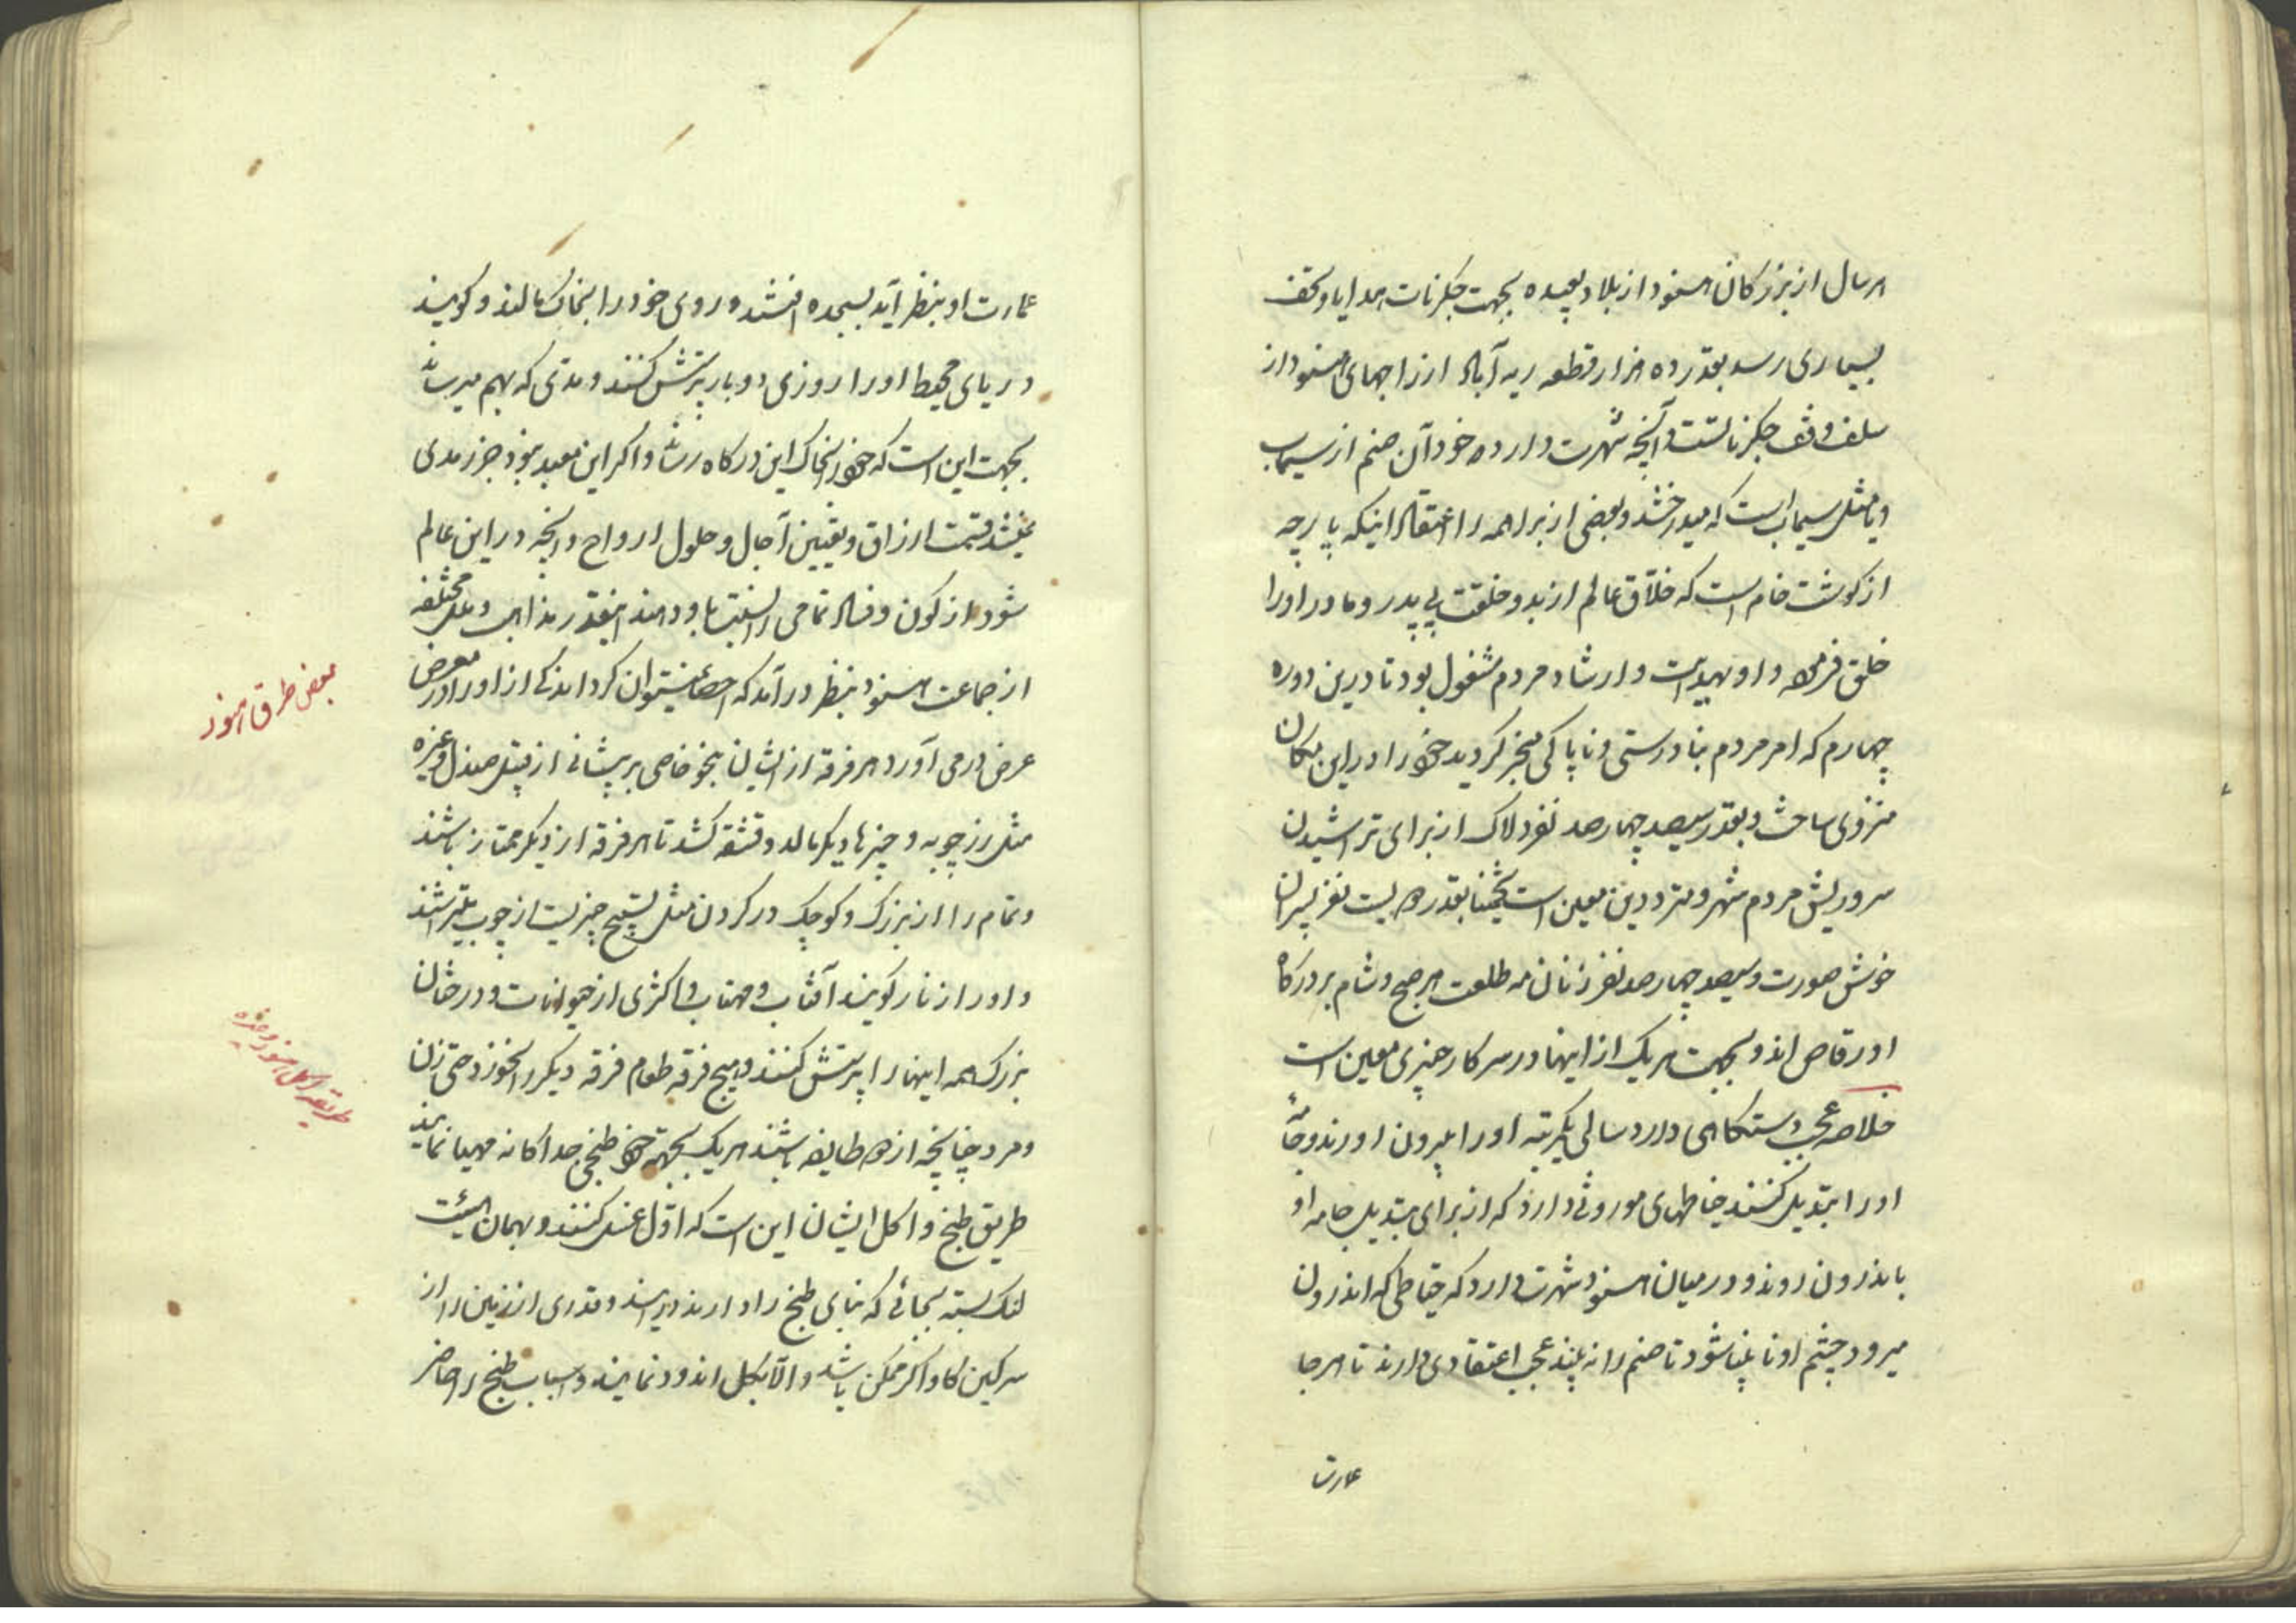 هر سال از بزرکان هنود از بلاد بعیده بجهت جکرنات هدایا و تحف
بسیاری رسد بقدر ده هزار قطعه ریه آباد از راجهای هنود از
سلف وقف جکرناتست و آنچه شهرت دارد خود آن صنم از سیماب
و یا مثل سیماب است که میدرخشد و بعضی از براهمه را اعتقاد اینکه پارچه
از کوشت خام است که خلاق عالم از بدو خلقت بی پدر و مادر او را
خلق فرموده و او بهدایت و ارشاد مردم مشغول بود تا درین دوره
چهارم که امر مردم بنادرستی و ناپاکی منجر کردید خود را در این مکان
منزوی ساخت و بقدر سیصد چهارصد نفر دلاک از برای تراشیدن
سر و ریش مردم شهر و مترددین معین است تخمینا بقدر دویست نفر پسران
خوش صورت و سیصد چهارصد نفر زنان مه طلعت هر صبح و شام بر درکاه
او رقاص اند و بجهت هر یک از اینها در سرکار چیزی معین است
خلاصه عجب دستکاهی دارد سالی یکمرتبه او را بیرون اورند و جامهٔ
او را تبدیل کنند خیاطهای موروثی دارد که از برای تبدیل جامه او
باندرون روند و در میان هنود شهرت دارد که خیاطی که اندرون
میرود چشم او نابینا شود تا صنم را نه بیند عجب اعتقادی دارند تا هر جا
عمارت
عمارت او بنظر آید بسجده افتند و روی خود را بخاک مالند و کویند
دریای محیط او را روزی دو بار پرستش کنند و مدی که بهم میرساند
بجهت این است که خود را بخاک این درکاه رساند و اکر این معبد نبود جزر مدی
نمیشد قسمت ارزاق و تعیین آجال و حلول ارواح و آنچه در این عالم
شود از کون و فساد تمامی را نسبت باو دهند اینقدر مذاهب و ملل مختلفه
از جماعت هنود بنظر درآمد که احصا نمیتوان کرد اندکی از او را در معرض
عرض درمی آورد هر فرقه از ایشان بنحو خاصی بر پیشانی از قبیل صندل و غیره
مثل زرچوبه و چیزها دیکر مالد و قشقه کشد تا هر فرقه از دیکر ممتاز باشند
و تمام را از بزرک و کوچک در کردن مثل تسبیح چیزیست از چوب بتراشند
و او را زنار کویند آفتاب و مهتاب و اکثری از حیوانات و درختان
بزرک همه اینها را پرستش کنند و هیچ فرقه طعام فرقه دیکر را نخورد حتی زن
و مرد چنانچه از دو طایفه باشند هر یک بجهته خود طبخی جداکانه مهیا نمایند
طریق طبخ و اکل ایشان این است که اول غسل کنند و بهمان هیئت
لنک بسته بجائی که بنای طبخ را دارند درآیند و قدری از زمین را از
سرکین کاو اکر ممکن باشد و الا بکل اندود نمایند و اسباب طبخ را حاضر
بعض طرق هنود
طریقه اکل هنود و غیره